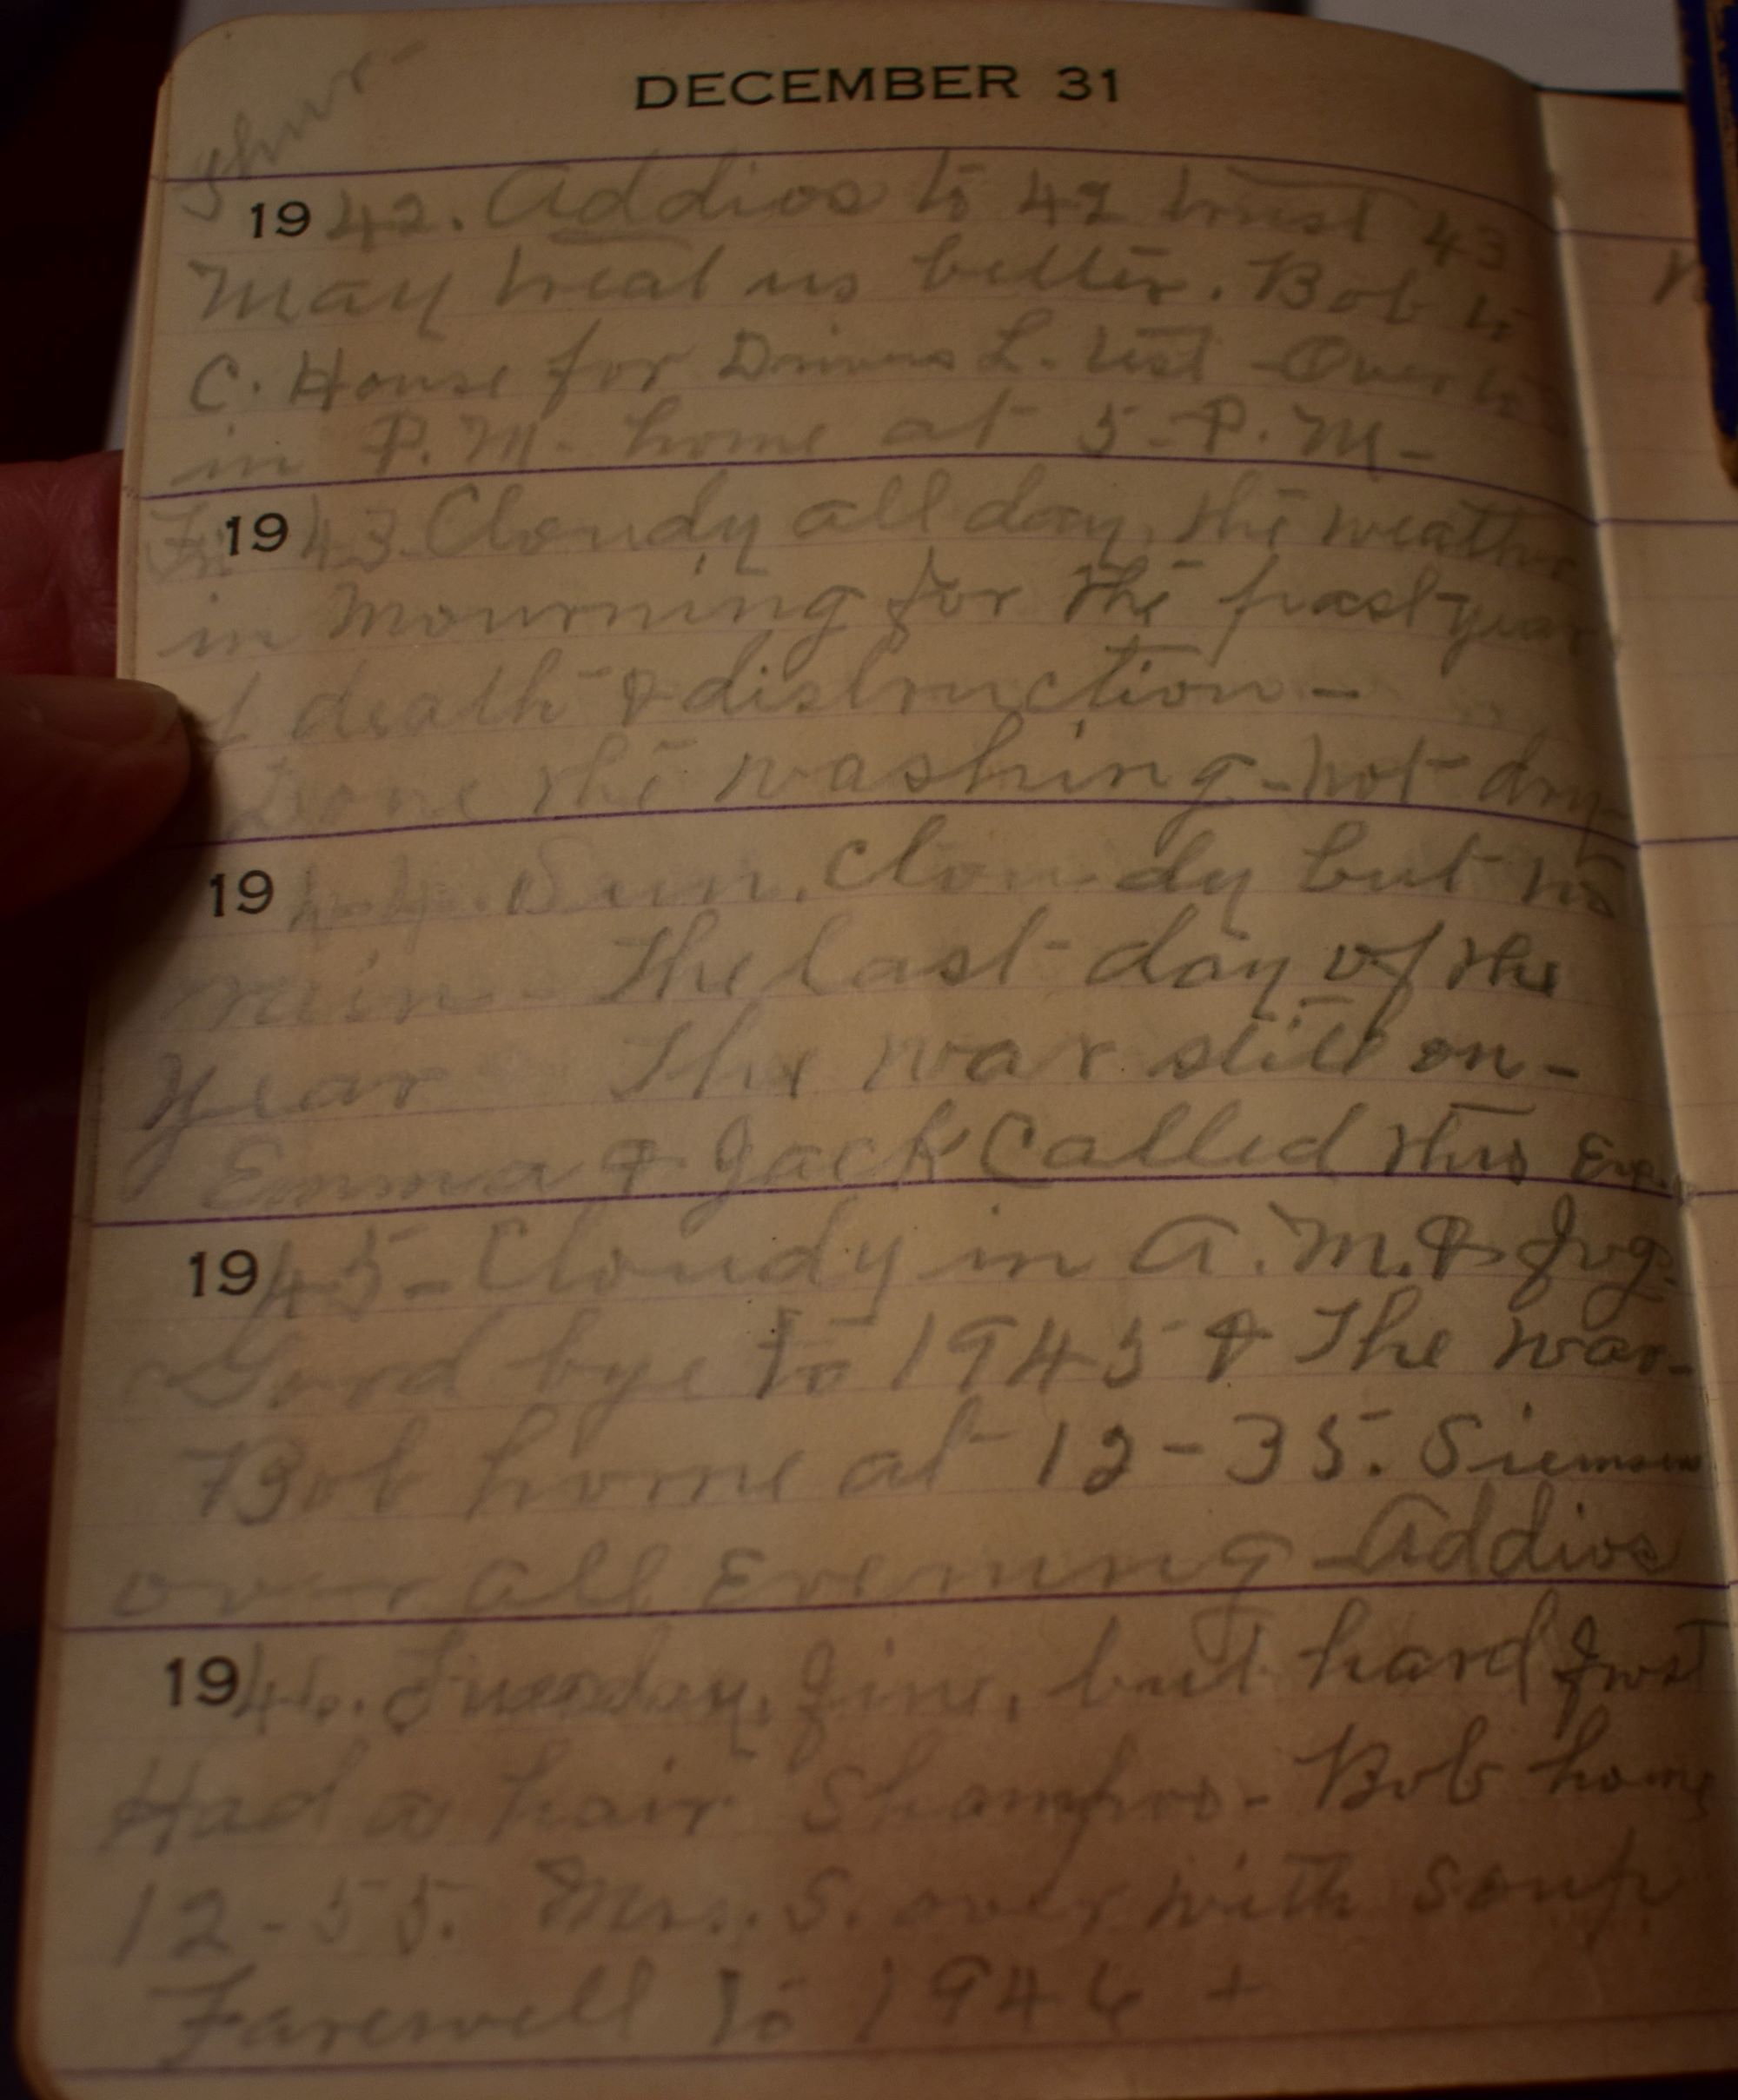 DECEMBER 31
Thur-
1942. Addios to 42 trust 43
May treat us better. Bob to
C. House for Drivers L. test - Over to
in P.M. home at 5 - P.M-
Fri 1943 Cloudy all day, the weather
in mourning for the past year
of death & distruction -
Done the washing - not dry-
1944. Sun. Cloudy but no
rain - The last day of the
Year The war still on -
Emma & Jack Called this Eve
1945 - Cloudy in A.M. & fog.
Good bye to 1945 & The war-
Bob home at 12-35. Siemsens
over all Evening - Addios
1946. Tuesday, fine, but hard frost
Had a hair Shampoo - Bob home
12-55. Mrs. S. over with soup
Farewell to 1946 +